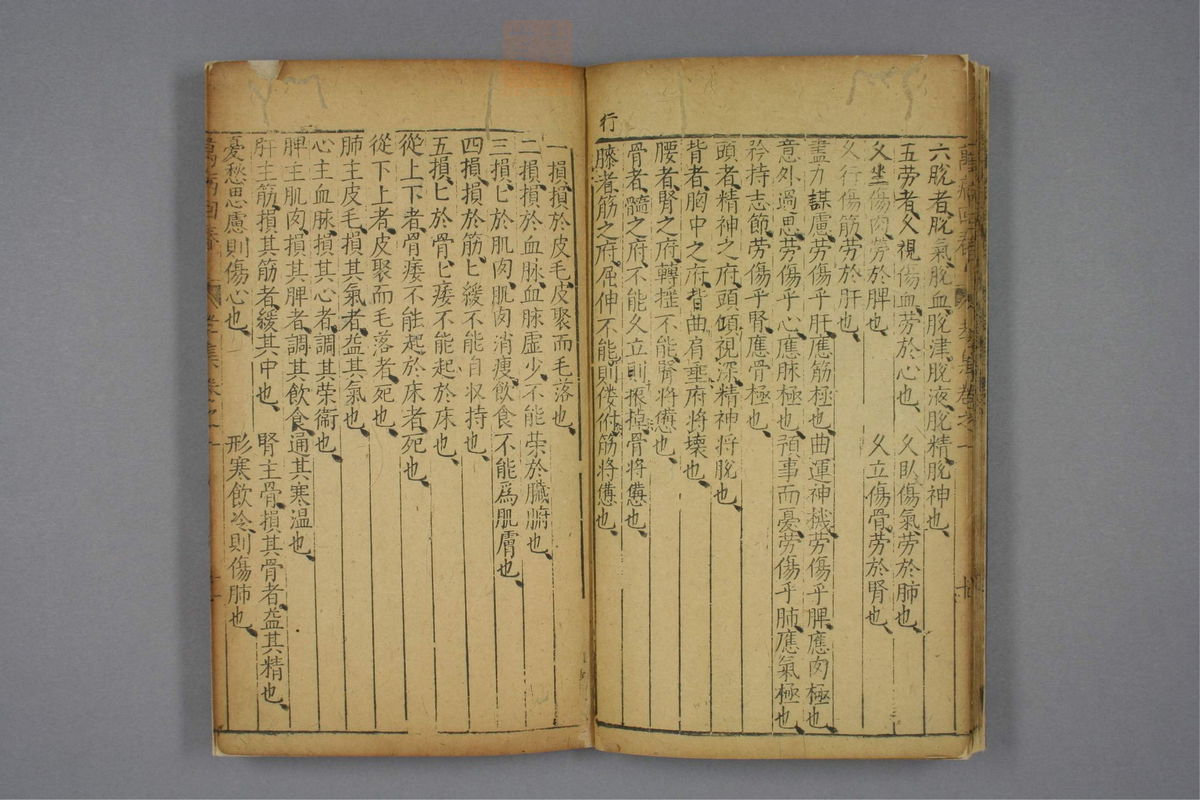 六脫者脫氣脫血脫津脫液脫精脫神也
五劳者久視傷血劳於心也 久卧傷氣劳於肺也
久坐傷肉劳於脾也 久立傷骨劳於腎也
久行傷筋劳於肝也
盡力謀慮劳傷乎肝應筋極也曲運神機劳傷乎脾應肉極也
意外過思劳傷乎心應脉極也預事而憂劳傷乎肺應氣極也
矜持志節劳傷乎腎應骨極也
頭者精神之府頭傾視深精神将脫也
背者胸中之府背曲肩垂府将壊也
腰者腎之府轉摇不能腎将憊也
骨者髓之府不能久立則振掉骨将憊也
行
膝者筋之府屈伸不能則偻俯筋将憊也
一損損於皮毛皮聚而毛落也
二損損於血脉血脉虚少不能荣於臓腑也
三損匕於肌肉肌肉消瘦飲食不能爲肌膚也
四損損於筋匕緩不能自収持也
五損匕於骨匕痿不能起於床也
從上下者骨痿不能起於床者死也
從下上者皮聚而毛落者死也
肺主皮毛損其氣者益其氣也
心主血脉損其心者調其荣衛也
脾主肌肉損其脾者調其飲食適其寒温也
肝主筋損其筋者緩其中也 腎主骨損其骨者益其精也
憂愁思慮則傷心也 形寒飲冷則傷肺也
萬病回春